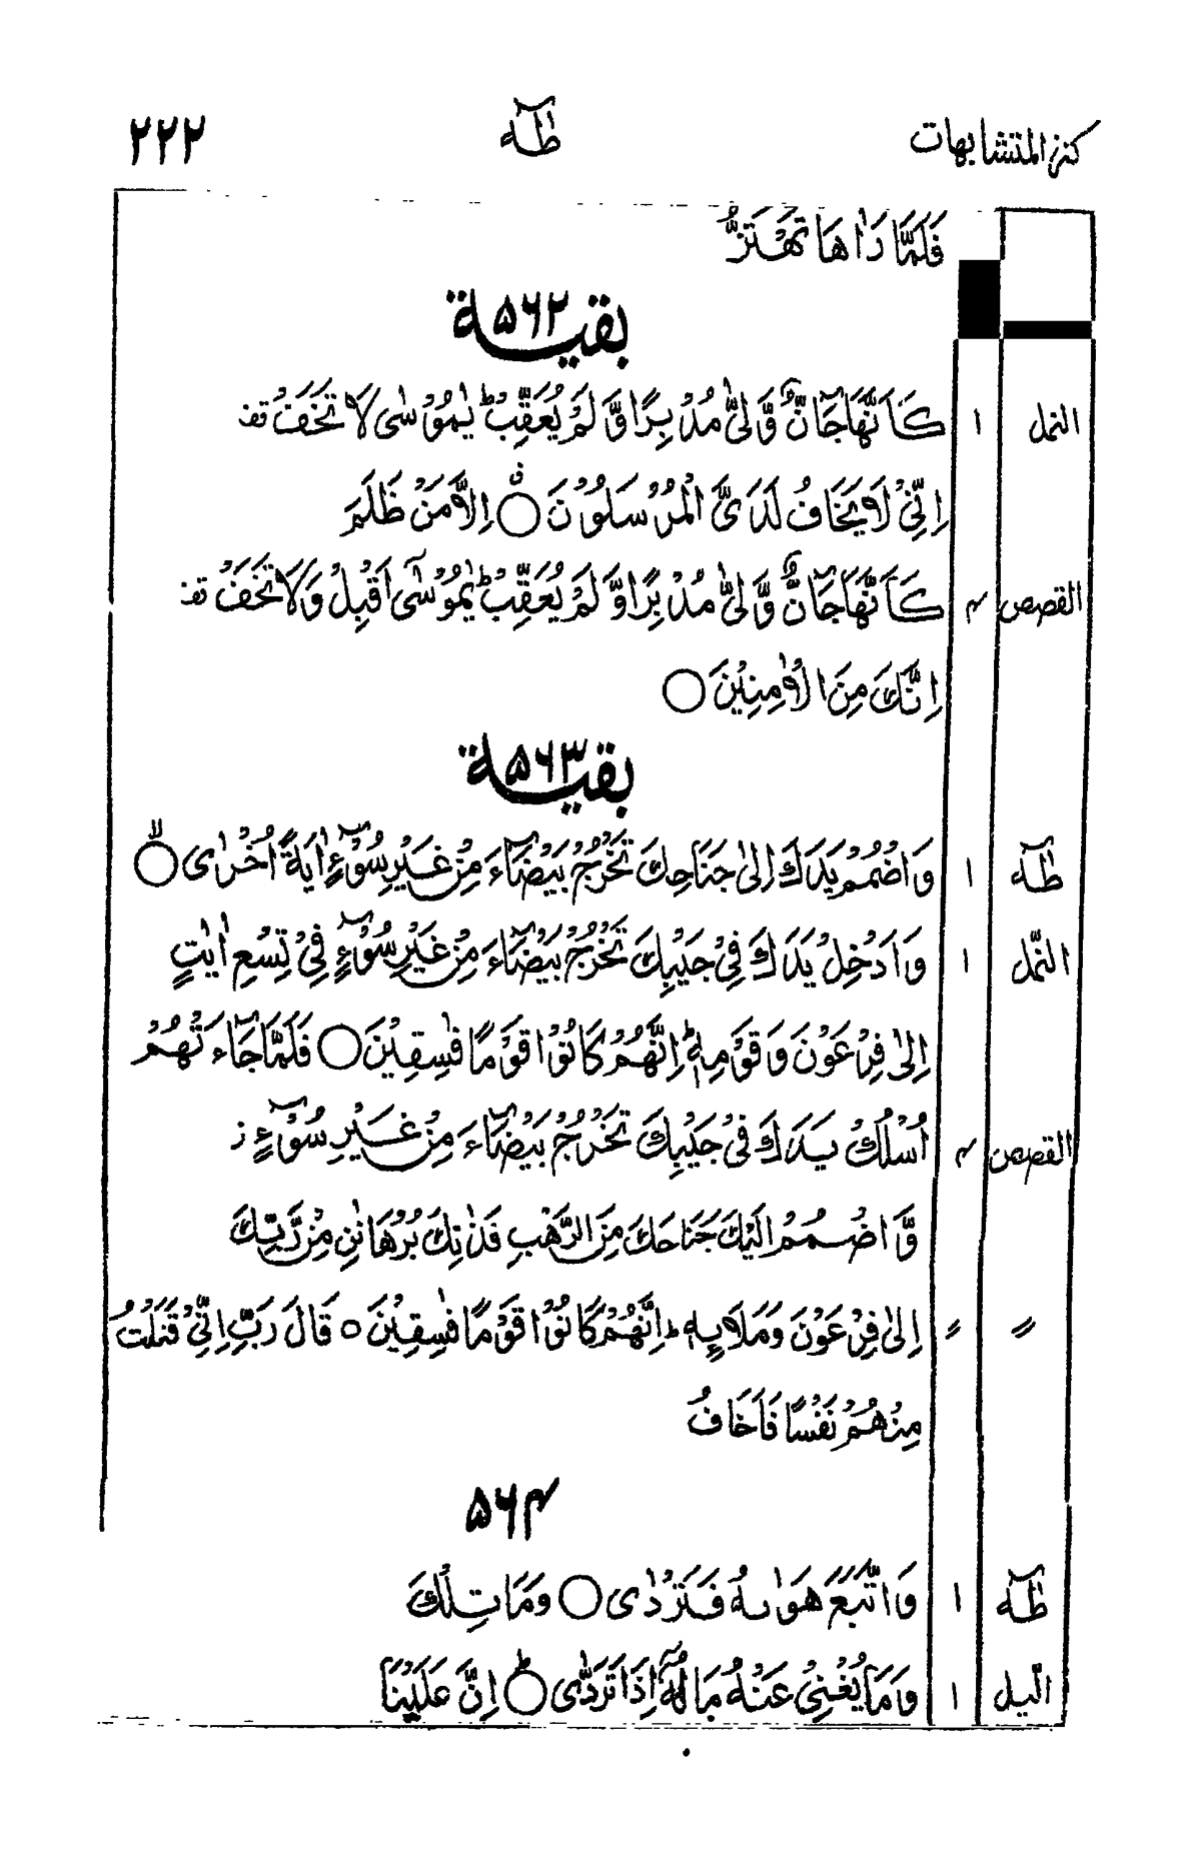 كنز المتشابهات طٰهٰ ۲۲۲
فَلَمَّا رَاٰهَا تَهْتَزُّ
بقية ۵۶۲
النمل ۱ كَاَنَّهَا جَآنٌّ وَّلّٰى مُدْبِرًا وَّلَمْ يُعَقِّبْ ؕ يٰمُوْسٰى لَا تَخَفْ قف
اِنِّيْ لَا يَخَافُ لَدَيَّ الْمُرْسَلُوْنَ ○ اِلَّا مَنْ ظَلَمَ
القصص ۴ كَاَنَّهَا جَآنٌّ وَّلّٰى مُدْبِرًا وَّلَمْ يُعَقِّبْ ؕ يٰمُوْسٰٓى اَقْبِلْ وَلَا تَخَفْ قف
اِنَّكَ مِنَ الْاٰمِنِيْنَ ○
بقية ۵۶۳
طٰهٰ ۱ وَاضْمُمْ يَدَكَ اِلٰى جَنَاحِكَ تَخْرُجْ بَيْضَآءَ مِنْ غَيْرِ سُوْٓءٍ اٰيَةً اُخْرٰى ○
النّمل ۱ وَاَدْخِلْ يَدَكَ فِيْ جَيْبِكَ تَخْرُجْ بَيْضَآءَ مِنْ غَيْرِ سُوْٓءٍ فِيْ تِسْعِ اٰيٰتٍ
اِلٰى فِرْعَوْنَ وَقَوْمِهٖ ؕ اِنَّهُمْ كَانُوْا قَوْمًا فٰسِقِيْنَ ○ فَلَمَّا جَآءَتْهُمْ
القصص ۴ اُسْلُكْ يَدَكَ فِيْ جَيْبِكَ تَخْرُجْ بَيْضَآءَ مِنْ غَيْرِ سُوْٓءٍ ز
وَّاضْمُمْ اِلَيْكَ جَنَاحَكَ مِنَ الرَّهْبِ فَذٰنِكَ بُرْهَانٰنِ مِنْ رَّبِّكَ
〃 〃 اِلٰى فِرْعَوْنَ وَمَلَا۟ىِٕهٖ ؕ اِنَّهُمْ كَانُوْا قَوْمًا فٰسِقِيْنَ ○ قَالَ رَبِّ اِنِّيْ قَتَلْتُ
مِنْهُمْ نَفْسًا فَاَخَافُ
۵۶۴
طٰهٰ ۱ وَاتَّبَعَ هَوٰىهُ فَتَرْدٰى ○ وَمَا تِلْكَ
الّيل ۱ وَمَا يُغْنِيْ عَنْهُ مَالُهٗٓ اِذَا تَرَدّٰى ○ؕ اِنَّ عَلَيْنَا